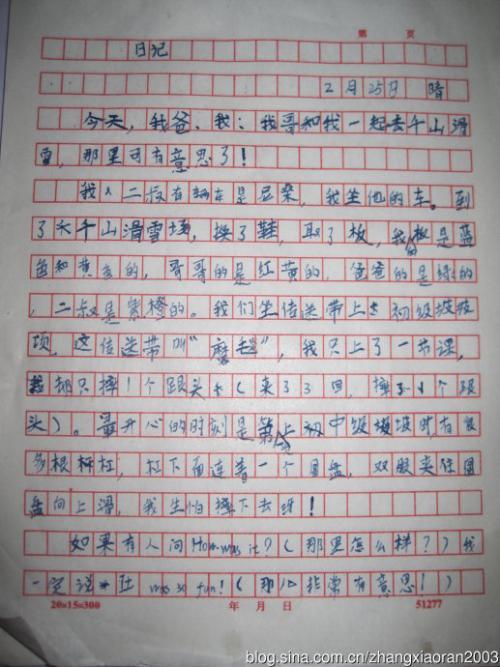 第 页
日记
2月25日 晴
今天,我爸、我、我哥和我一起去千山滑
雪,那里可有意思了!
我人二叔有辆车是尼桑,我坐他的车。到
了大千山滑雪场,换了鞋,取了板,我的板是蓝
色和黄色的,哥哥的是红黄的,爸爸的是绿的
,二叔是紫橙的。我们坐传送带上去初级坡坡
顶,这传送带叫“魔毯”,我只上了一节课,
我却只摔1个跟头(来了3回,摔了1个跟
头)。最开心的时刻是第一次上初中级坡坡时有很
多根杆杠,杠下面连着一个圆盘,双股夹住圆
盘向上滑,我生怕摔下去呀!
如果有人问How was it?(那里怎么样?)我
一定说It was so fun!(那儿非常有意思!)
20×15=300 年 月 日 51277
blog.sina.com.cn/zhangxiaoran2003